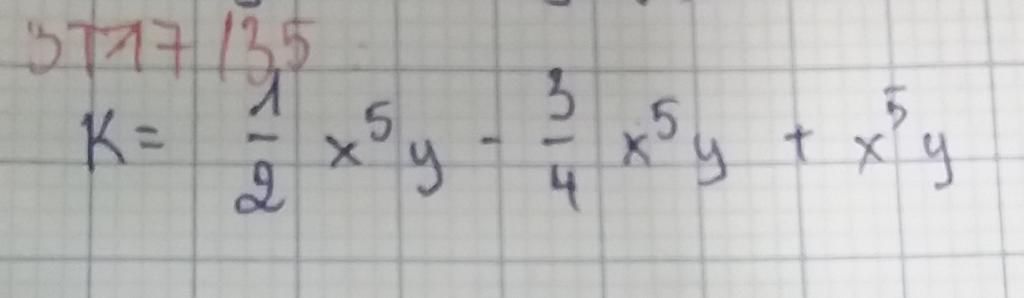 BT17/35
K = 1/2 x⁵y - 3/4 x⁵y + x⁵y